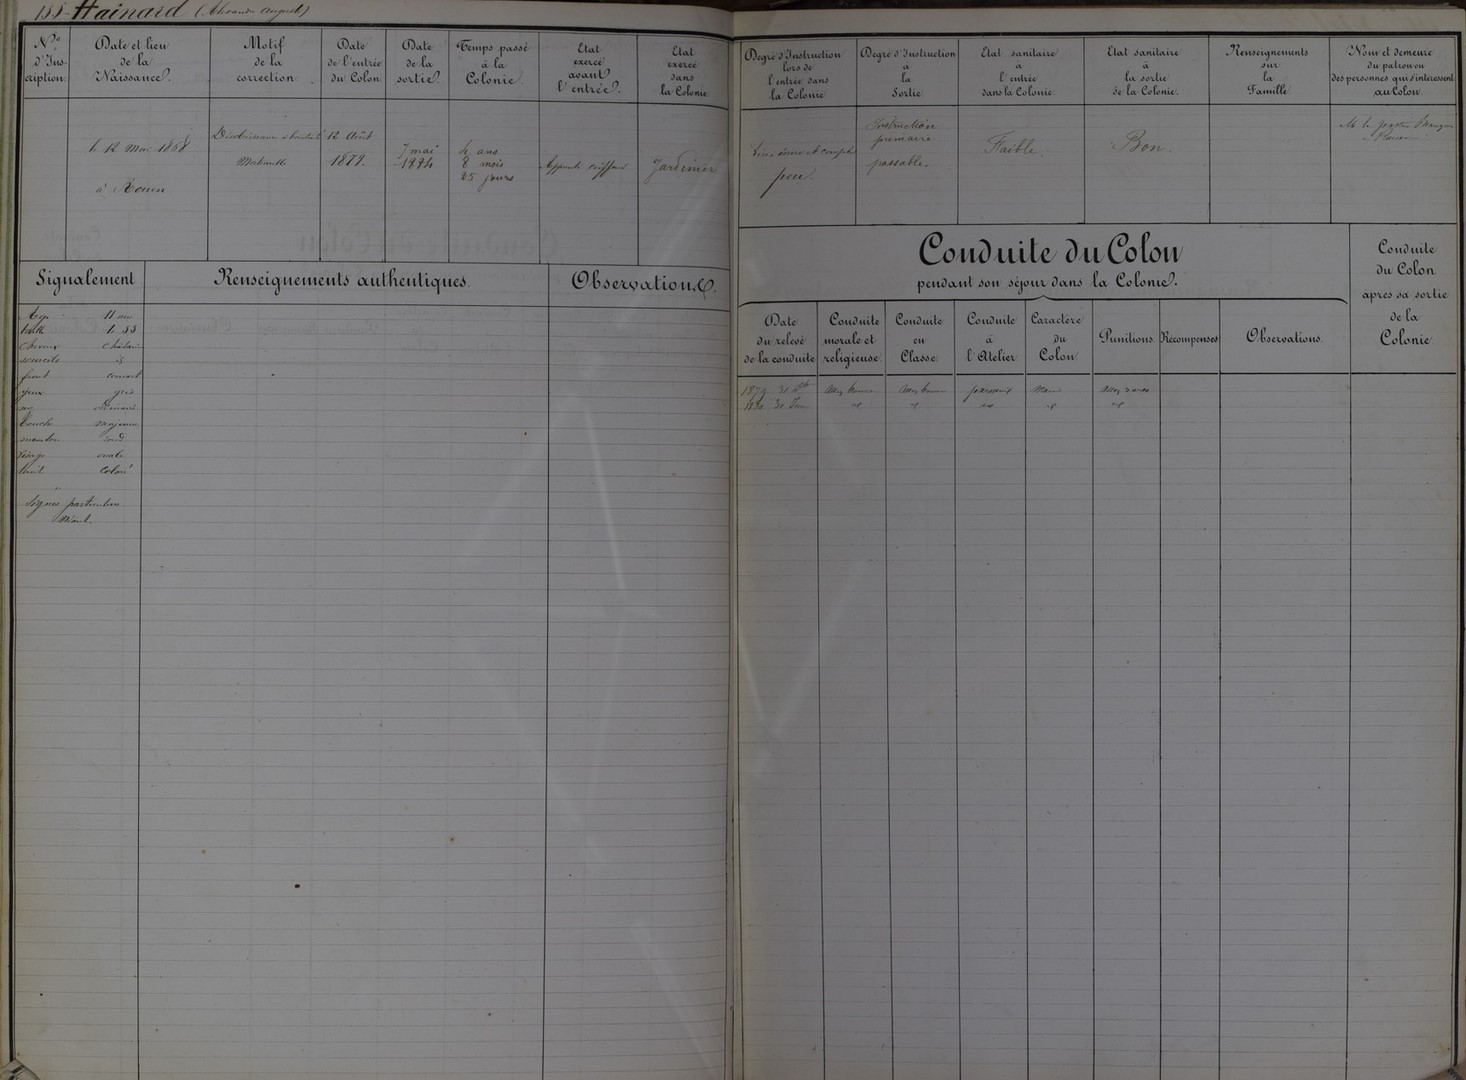 188 - Hainard (Alexandre Auguste)
N.º d'Ins-cription.
Date et lieu de la Naissance.
Motif de la correction
Date de l'entrée du Colon
Date de la sortie.
Temps passé à la Colonie.
Etat exercé avant l'entrée.
Etat exercé dans la Colonie
le 12 Mai 1868
à Rouen
12 Août
1879.
7 mai
1884
4 ans
8 mois
25 jours
Apprenti coiffeur
Jardinier
Signalement
Renseignements authentiques.
Observations.
Age 11 ans
taille 1.33
cheveux châtains
sourcils id
front couvert
yeux gris
nez
bouche moyenne
menton rond
visage ovale
teint coloré
Signes particuliers
Néant.
Degré d'Instruction lors de l'entrée dans la Colonie
Degré d'Instruction à la Sortie
Etat sanitaire à l'entrée dans la Colonie
Etat sanitaire à la sortie de la Colonie.
Renseignements sur la Famille
Nom et demeure du patron ou des personnes qui s'intéressent au Colon.
Lire, écrire et compter
peu
Instruction
primaire
passable.
Faible.
Bon.
Conduite du Colon
pendant son séjour dans la Colonie.
Conduite du Colon après sa sortie de la Colonie
Date du relevé de la conduite
Conduite morale et religieuse.
Conduite en Classe.
Conduite à l'Atelier
Caractère du Colon
Punitions.
Récompenses
Observations.
1879 31 Xbre assez bonne assez bonne assez rares
1880 30 Juin id id id id id